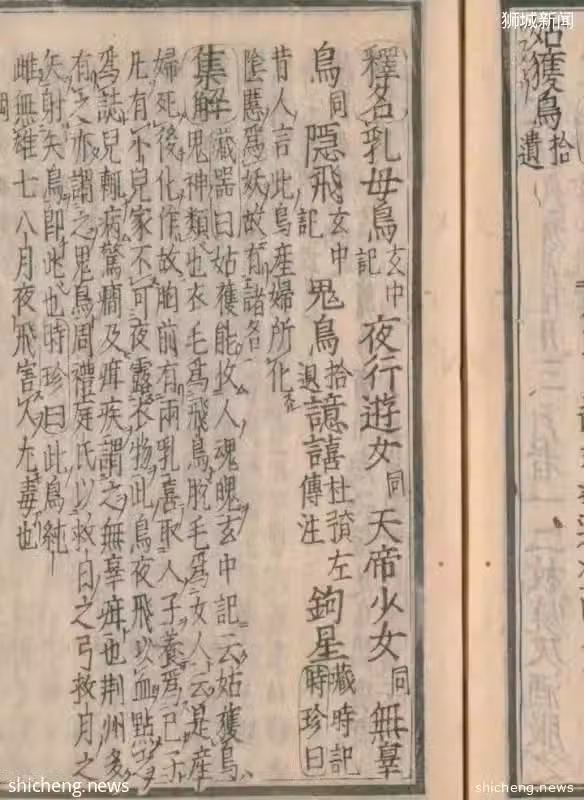 狮城新闻
姑獲鳥拾遺
釋名乳母鳥玄中記夜行遊女同天帝少女同無辜
鳥同隱飛玄中記鬼鳥拾遺譩譆杜預左傳注鉤星歲時記時珍曰
昔人言此鳥產婦所化
陰慝爲妖故有諸名
集解藏器曰姑獲能收人魂魄玄中記云姑獲鳥
鬼神類也衣毛爲飛鳥脫毛爲女人云是產
婦死後化作故胸前有兩乳喜取人子養爲己子
凡有小兒家不可夜露衣物此鳥夜飛以血點之
爲誌兒輒病驚癇及疳疾謂之無辜疳也荊州多
有之亦謂之鬼鳥周禮庭氏以救日之弓救月之
矢射矢鳥即此也時珍曰此鳥純
雌無雄七八月夜飛害人尤毒也
shicheng.news
shicheng.news